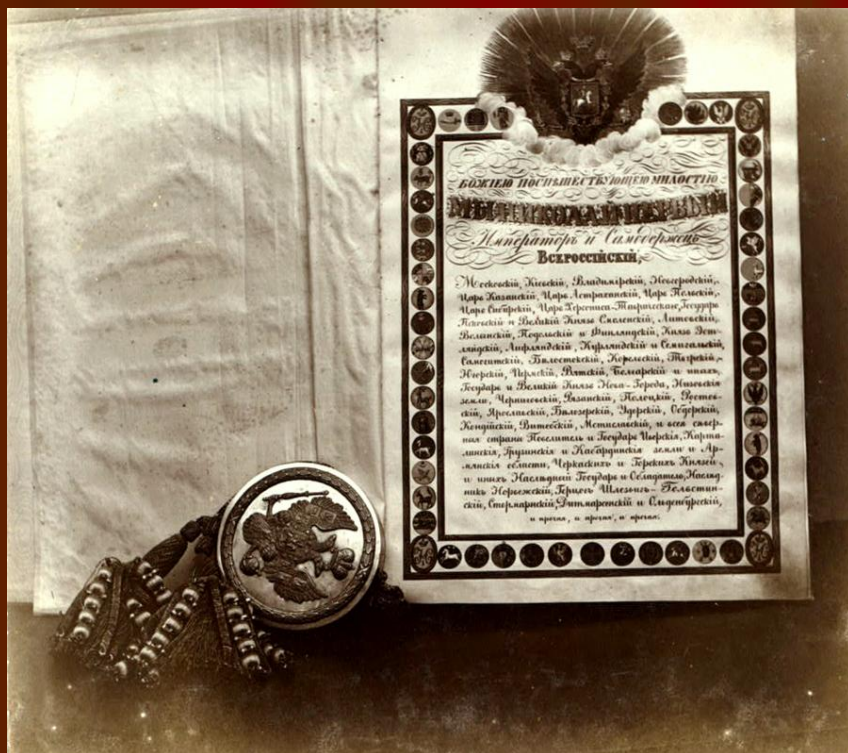 БОЖІЕЮ ПОСПѢШЕСТВУЮЩЕЮ МИЛОСТІЮ
МЫ НИКОЛАЙ ПЕРВЫЙ
Императоръ и Самодержецъ
ВСЕРОССІЙСКІЙ,
Московскій, Кіевскій, Владимірскій, Новгородскій,
Царь Казанскій, Царь Астраханскій, Царь Польскій,
Царь Сибирскій, Царь Херсониса-Таврическаго, Государь
Псковскій и Великій Князь Смоленскій, Литовскій,
Волынскій, Подольскій и Финляндскій, Князь Эст-
ляндскій, Лифляндскій, Курляндскій и Семигальскій,
Самогитскій, Бѣлостокскій, Корельскій, Тверскій,
Югорскій, Пермскій, Вятскій, Болгарскій и иныхъ,
Государь и Великій Князь Нова-Города, Низовскія
земли, Черниговскій, Рязанскій, Полоцкій, Ростов-
скій, Ярославскій, Бѣлозерскій, Удорскій, Обдорскій,
Кондійскій, Витебскій, Мстиславскій, и всея сѣвер-
ныя страны Повелитель и Государь Иверскія, Карта-
линскія, Грузинскія и Кабардинскія земли и Ар-
мянскія области, Черкаскихъ и Горскихъ Князей,
и иныхъ Наслѣдный Государь и Обладатель, Наслѣд-
никъ Норвежскій, Герцогъ Шлезвигъ-Гольстин-
скій, Стормарнскій, Дитмарсенскій и Ольденбургскій,
и прочая, и прочая, и прочая.